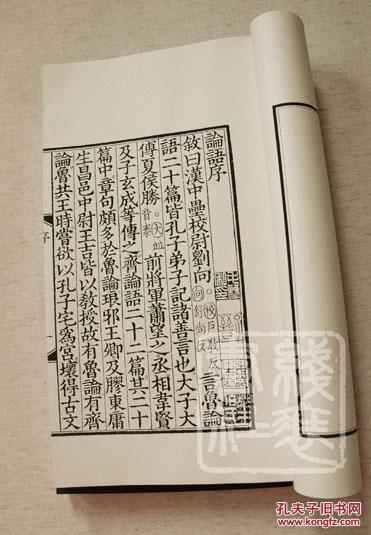 論語序
敘曰漢中壘校尉劉向言魯論
語二十篇皆孔子弟子記諸善言也大子大
傅夏侯勝前將軍蕭望之丞相韋賢
及子玄成等傳之齊論語二十二篇其二十
篇中章句頗多於魯論琅邪王卿及膠東庸
生昌邑中尉王吉皆以教授故有魯論有齊
論魯共王時嘗欲以孔子宅為宮壞得古文
序
孔夫子旧书网
www.kongfz.com